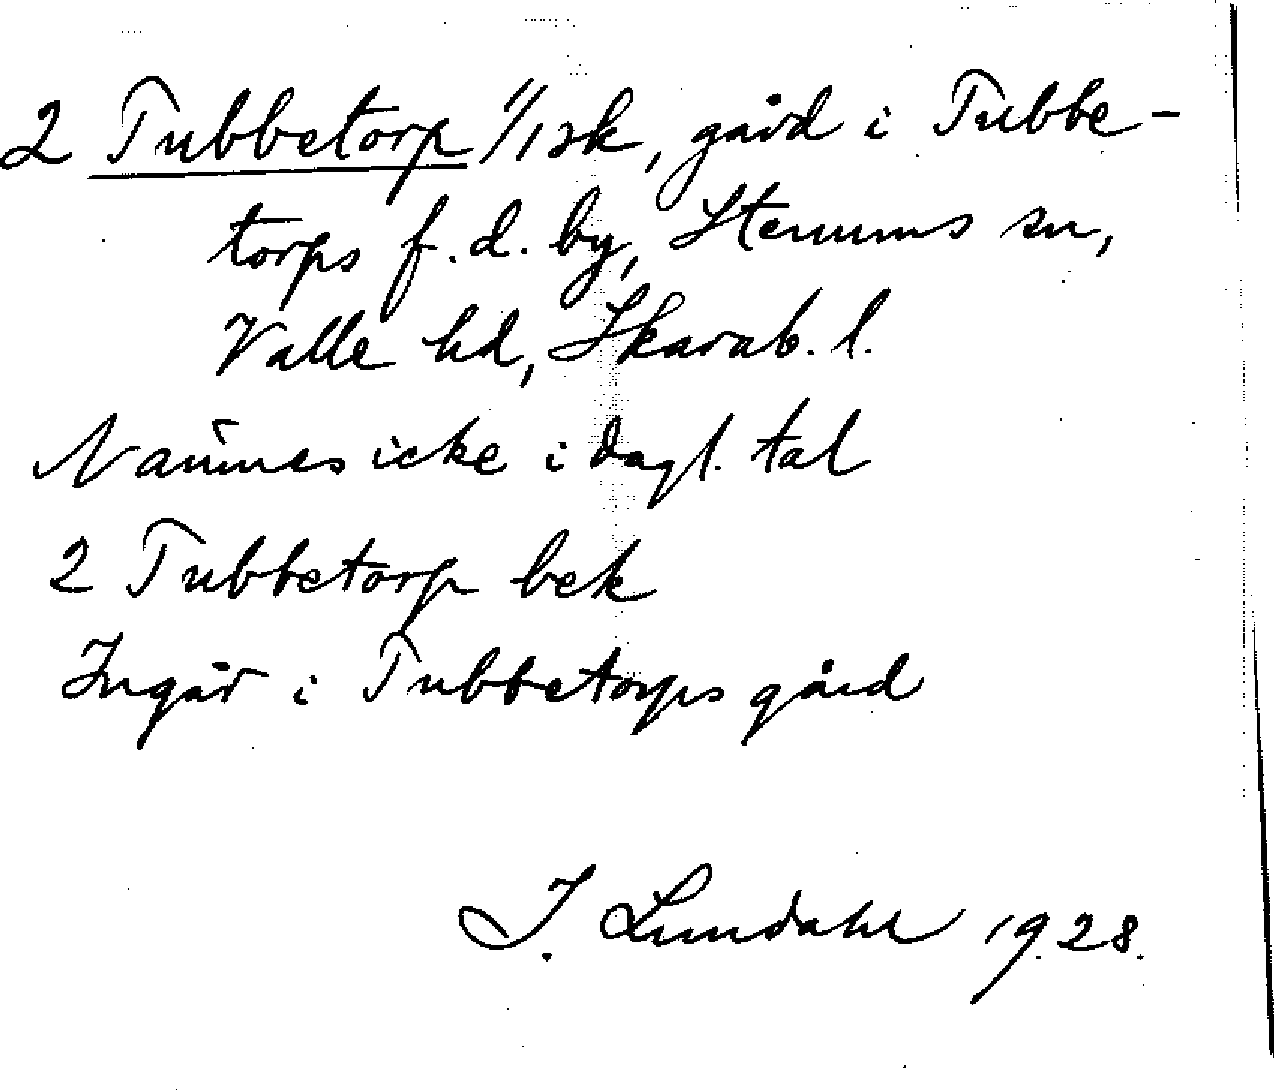 2 Tubbetorp 1/1 sk, gård i Tubbe-
torps f.d. by, Stenums sn,
Valle hd, Skarab. l.
Nämnes icke i dagl. tal
2 Tubbetorp bek
Ingår i Tubbetorps gård
I. Lundahl 1928.